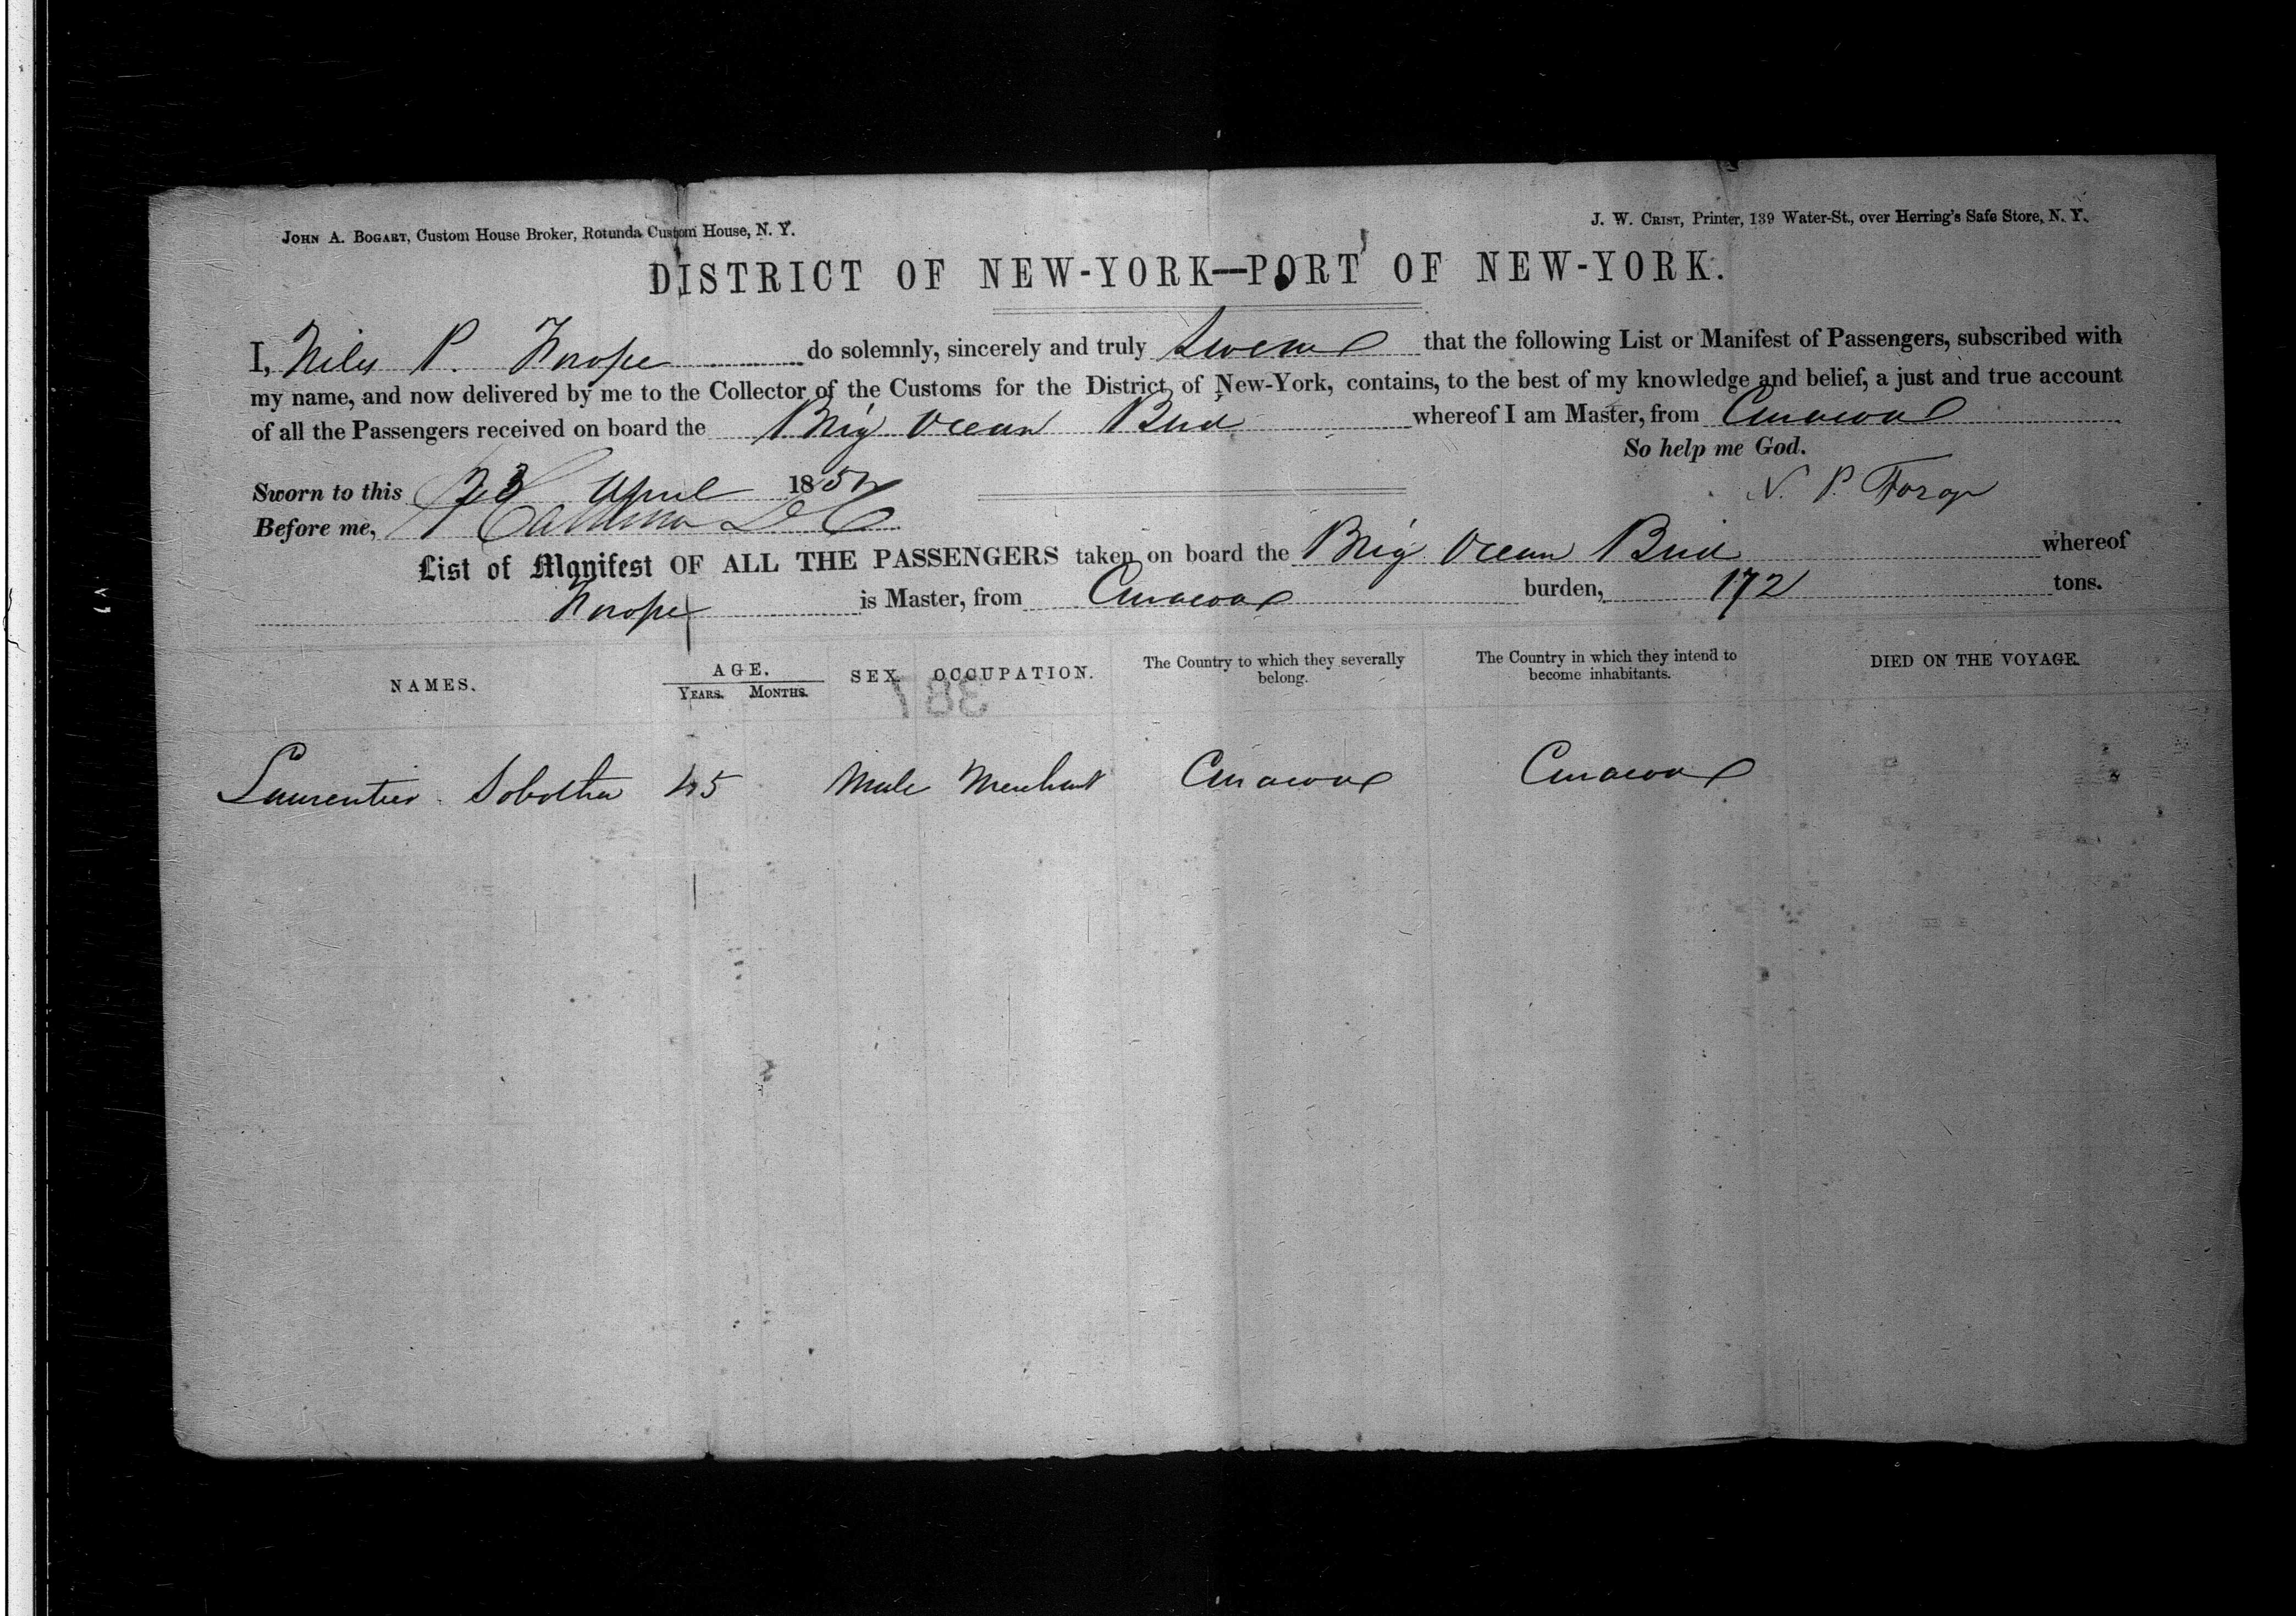 JOHN A. BOGART, Custom House Broker, Rotunda Custom House, N. Y.
J. W. CRIST, Printer, 139 Water-St., over Herring's Safe Store, N. Y.
DISTRICT OF NEW-YORK—PORT OF NEW-YORK.
I, P. do solemnly, sincerely and truly that the following List or Manifest of Passengers, subscribed with
my name, and now delivered by me to the Collector of the Customs for the District of New-York, contains, to the best of my knowledge and belief, a just and true account
of all the Passengers received on board the Brig Ocean Bird whereof I am Master, from Curacoa
So help me God.
Sworn to this 23 April 185
N. P.
Before me,
List of Manifest OF ALL THE PASSENGERS taken on board the Brig Ocean Bird whereof
is Master, from Curacoa burden, 172 tons.
NAMES. AGE. SEX. OCCUPATION. The Country to which they severally belong. The Country in which they intend to become inhabitants. DIED ON THE VOYAGE.
YEARS. MONTHS.
387
45 Male Merchant Curacoa Curacoa